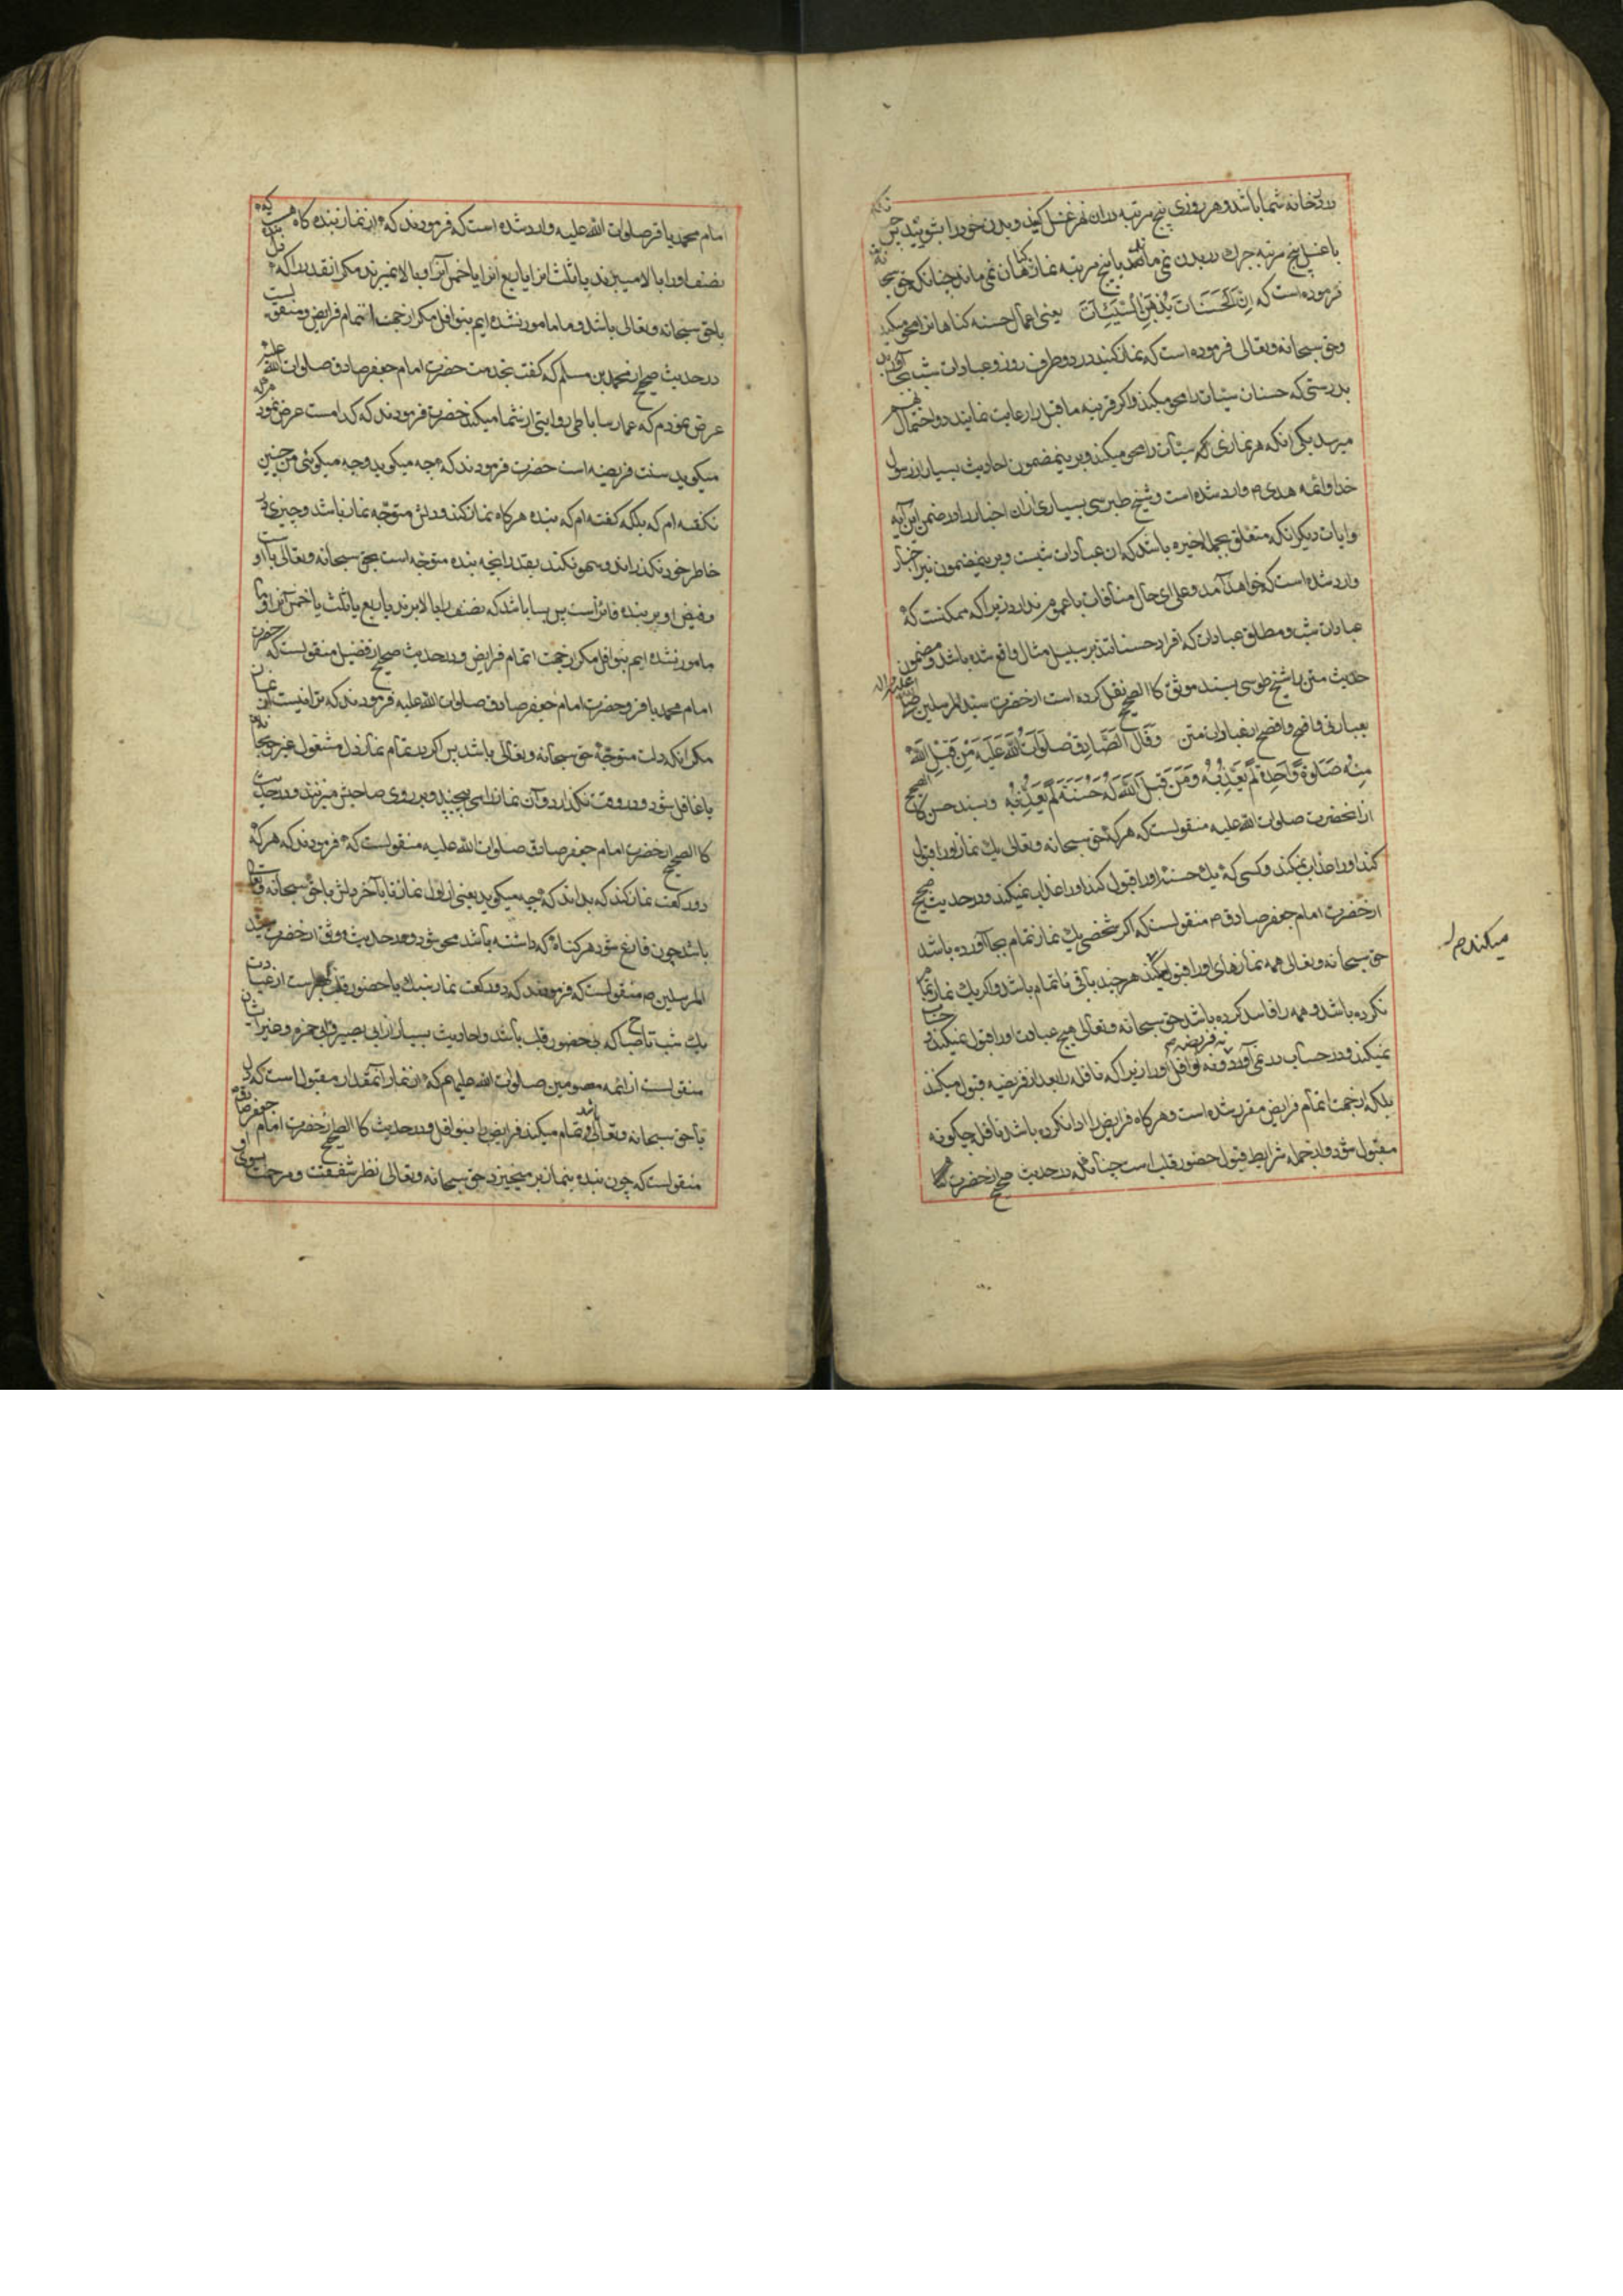 در خانه شما باشد و هر روزی پنج مرتبه در ان نهر غسل کنید و بدن خود را بشوئید چرک
با غسل پنج مرتبه چرک در بدن نمی ماند با پنج مرتبه نماز کناهان نمی ماند چنانکه حق سبحانه
فرموده است که اِنَّ الْحَسَنَاتِ یُذْهِبْنَ السَّیِّئاتِ یعنی اعمال حسنه کناهانرا محو میکند
و حق سبحانه و تعالی فرموده است که نماز کنید در دو طرف روز و عبادات شب بجا آورید
بدرستی که حسنات سیئات را محو میکند و اکر قرینه ما قبل را رعایت نمایند دو احتمال بهم
میرسد یکی انکه هر نمازی که سیئات را محو میکند و برینمضمون احادیث بسیار از رسول
خدا و ائمه هدی م وارد شده است و شیخ طبرسی بسیاری از ان اخبار را در ضمن این آیه
و ایات دیکر انکه متعلق بجمله اخیره باشد که ان عبادات شبست و برینمضمون نیز اخبار
وارد شده است که خواهد آمد و علی ای حال منافات با عموم ندارد زیرا که ممکنست که
عبادات شب و مطلق عبادات که افراد حسناتند بر سبیل مثال واقع شده باشد و مضمون
حدیث متن را شیخ طوسی بسند موثق کالصحیح نقل کرده است از حضرت سید المرسلین صلی الله علیه و اله
بعبارتی واضح و افصح از عبارات متن وَ قَالَ الصَّادِقُ صَلَواتُ اللهِ عَلَیْهِ مَنْ قَبِلَ اللهُ
مِنْهُ صَلوةً وَاحِدَةً لَمْ یُعَذِّبْهُ وَ مَنْ قَبِلَ اللهُ لَهُ حَسَنَةً لَمْ یُعَذِّبْهُ و بسند حسن کالصحیح
از انحضرت صلوات الله علیه منقولست که هر که حق سبحانه و تعالی یک نماز او را قبول
کند او را عذاب نمیکند و کسی که یک حسنه او را قبول کند او را عذاب نمیکند و در حدیث صحیح
از حضرت امام جعفر صادق م منقولست که اکر شخصی یک نماز تمام بجا آورده باشد
حق سبحانه و تعالی همه نمازهای او را قبول میکند هر چند باقی نا تمام باشد و اکر یک نماز تمام
نکرده باشد و همه را فاسد کرده باشد حق سبحانه و تعالی هیچ عبادت او را قبول نمیکند
نمیکند و در حساب در نمی آورد نه فریضه و نه نوافل او را زیرا که نافله را بعد از فریضه قبول میکند
میکند م
بلکه از جهت اتمام فرایض مقرر شده است و هر کاه فرایض را ادا نکرده باشد نافله چکونه
مقبول شود و از جمله شرایط قبول حضور قلب است چنانکه در حدیث صحیح از حضرت
امام محمد باقر صلوات الله علیه وارد شده است که فرمودند که از نماز بنده کاه هست که
نصف او را بالا میبرند یا ثلث انرا یا ربع انرا یا خمس آنرا و بالا نمیبرند مکر انقدر را که دل بنده
با حق سبحانه و تعالی باشد و ما مامور نشده ایم بنوافل مکر از جهت اتمام فرایض و منقولست
در حدیث صحیح از محمد بن مسلم که کفت بخدمت حضرت امام جعفر صادق صلوات الله علیه
عرض نمودم که عمار ساباطی روایتی از شما میکند حضرت فرمودند که کدامست عرض نمودم که
میکوید سنت فریضه است حضرت فرمودند که چه میکوید و چه میکوئی من چنین
نکفته ام که بلکه کفته ام که بنده هر کاه نماز کند و دلش متوجه نماز باشد و چیزی در
خاطر خود نکذراند و سهو نکند بقدر انچه بنده متوجه است بحق سبحانه و تعالی با او
و فیض او بر بنده فائز است پس بسا باشد که نصف را بالا برند یا ربع یا ثلث یا خمس آنرا و ما
مامور نشده ایم بنوافل مکر از جهت اتمام فرایض و در حدیث صحیح از فضیل منقولست که حضرت
امام محمد باقر و حضرت امام جعفر صادق صلوات الله علیه فرمودند که ترا نیست از نماز
مکر انکه دلت متوجه حق سبحانه و تعالی باشد پس اکر در تمام نماز دل مشغول غیر حق باشد
یا غافل شود و در وقت نکذارد و آن نماز را می پیچند و بر روی صاحبش میزنند و در حدیث
کالصحیح از حضرت امام جعفر صادق صلوات الله علیه منقولست که فرمودند که هر که
دو رکعت نماز کند که بداند که چه میکوید یعنی از اول نماز تا باخر دلش با حق سبحانه و تعالی
باشد چون فارغ شود هر کناه که داشته باشد محو شود و در حدیث موثق از حضرت سید
المرسلین ص منقولست که فرمودند که دو رکعت نماز سبک با حضور قلب بهتر است از عبادت
یک شب تا صباح که بی حضور قلب باشد و احادیث بسیار از ابی بصیر و ابی حمزه و غیر ایشان
منقول است از ائمه معصومین صلوات الله علیهم که از نماز آنمقدار مقبول است که دل
با حق سبحانه و تعالی باشد و تمام میکند فرایض را بنوافل و در حدیث کالصحیح از حضرت امام جعفر صادق
منقولست که چون بنده بنماز بر میخیزد حق سبحانه و تعالی نظر شفقت و مرحمت بسوی او